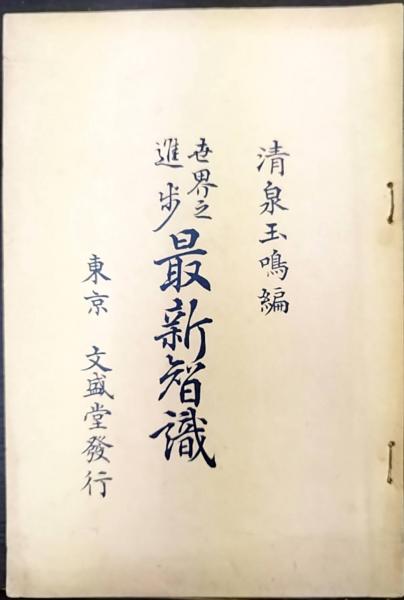 清泉玉鳴編
世界之
進步
最新智識
東京 文盛堂發行